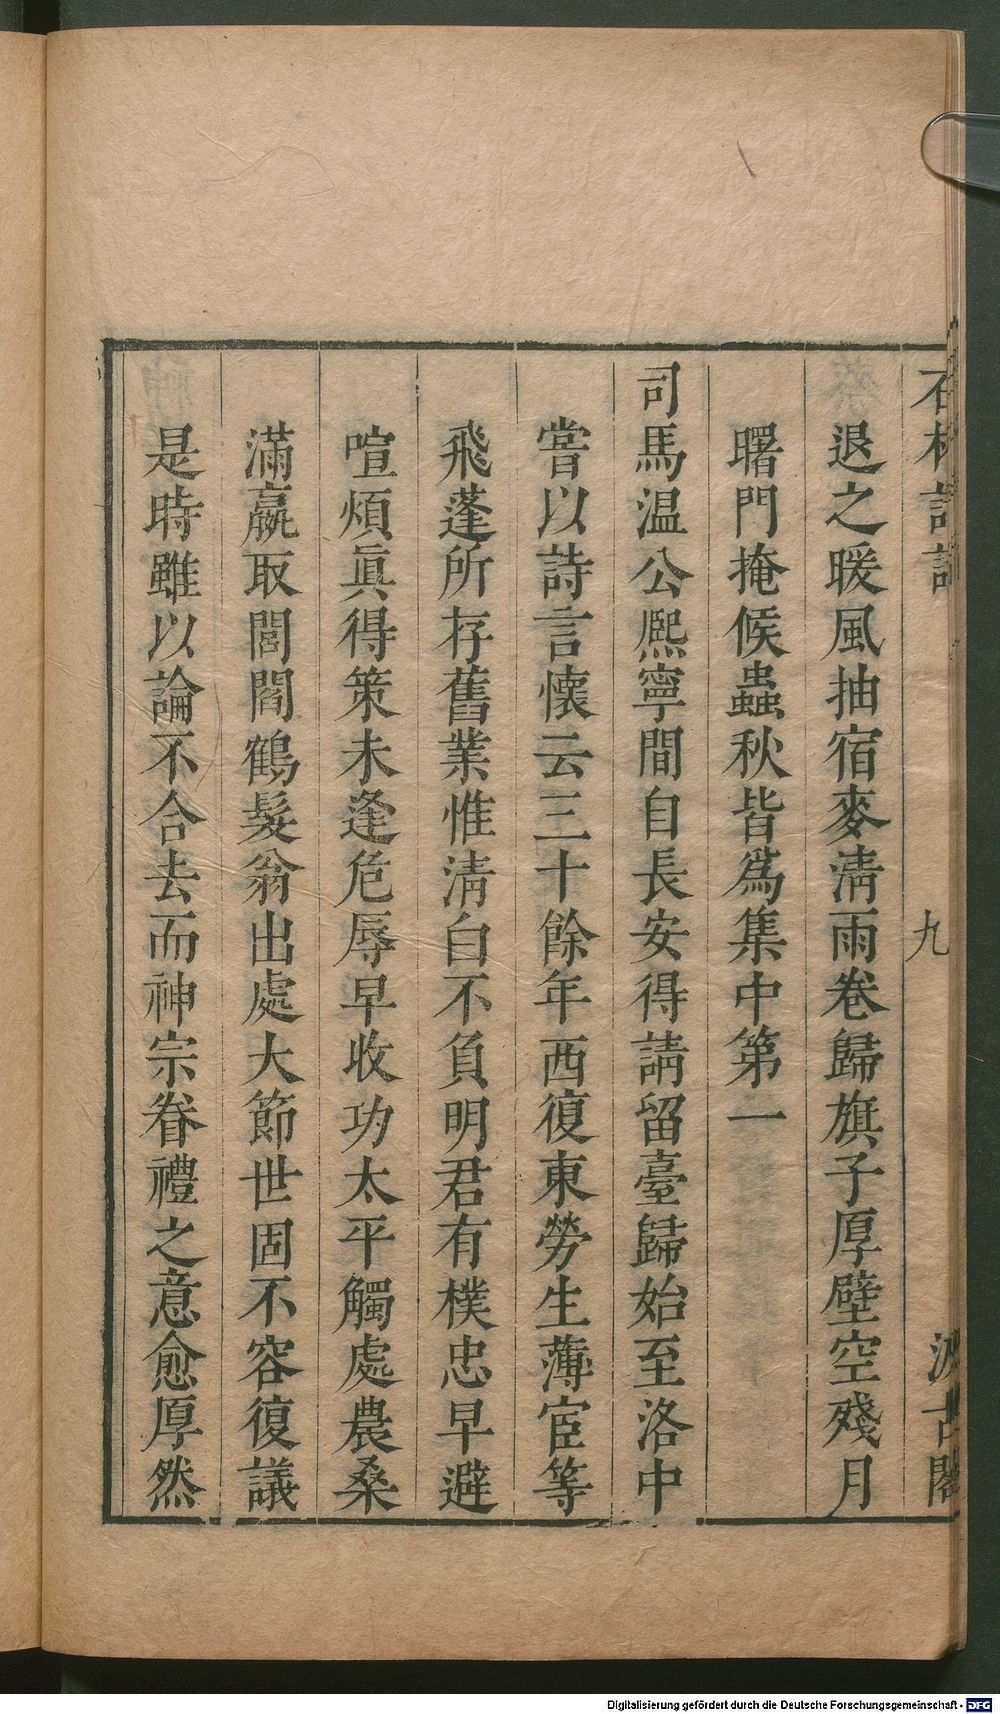 石林詩話
九
汲古閣
退之暖風抽宿麥淸雨卷歸旗子厚壁空殘月
曙門掩候蟲秋皆爲集中第一
司馬溫公熙寧間自長安得請留臺歸始至洛中
嘗以詩言懷云三十餘年西復東勞生薄宦等
飛蓬所存舊業惟淸白不負明君有樸忠早避
喧煩眞得策未逢危辱早收功太平觸處農桑
滿嬴取閭閻鶴髮翁出處大節世固不容復議
是時雖以論不合去而神宗眷禮之意愈厚然
Digitalisierung gefördert durch die Deutsche Forschungsgemeinschaft - DFG